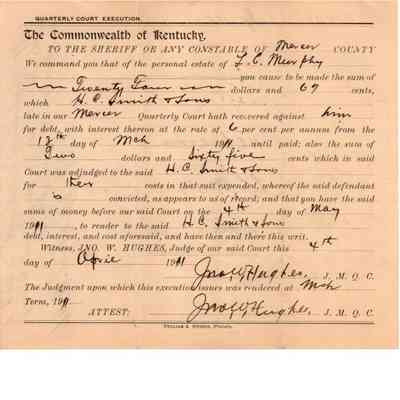 QUARTERLY COURT EXECUTION.
The Commonwealth of Kentucky,
TO THE SHERIFF OR ANY CONSTABLE OF Mercer COUNTY
We command you that of the personal estate of L. C. Murphy
you cause to be made the sum of
Twenty Four dollars and 67 cents,
which H. C. Smith & Sons
late in our Mercer Quarterly Court hath recovered against him
for debt, with interest thereon at the rate of 6 per cent per annum from the
12th day of Mch 1911 until paid; also the sum of
Two dollars and Sixty five cents which in said
Court was adjudged to the said H. C. Smith & Sons
for their costs in that suit expended, whereof the said defendant
is convicted, as appears to us of record; and that you have the said
sums of money before our said Court on the 4th day of May
1911, to render to the said H. C. Smith & Sons
debt, interest, and cost aforesaid, and have then and there this writ.
Witness, JNO. W. HUGHES, Judge of our said Court this 4th
day of April 1911
Jno W Hughes, J. M. Q. C.
The Judgment upon which this execution issues was rendered at Mch
Term, 1911.
ATTEST: Jno W Hughes, J. M. Q. C.